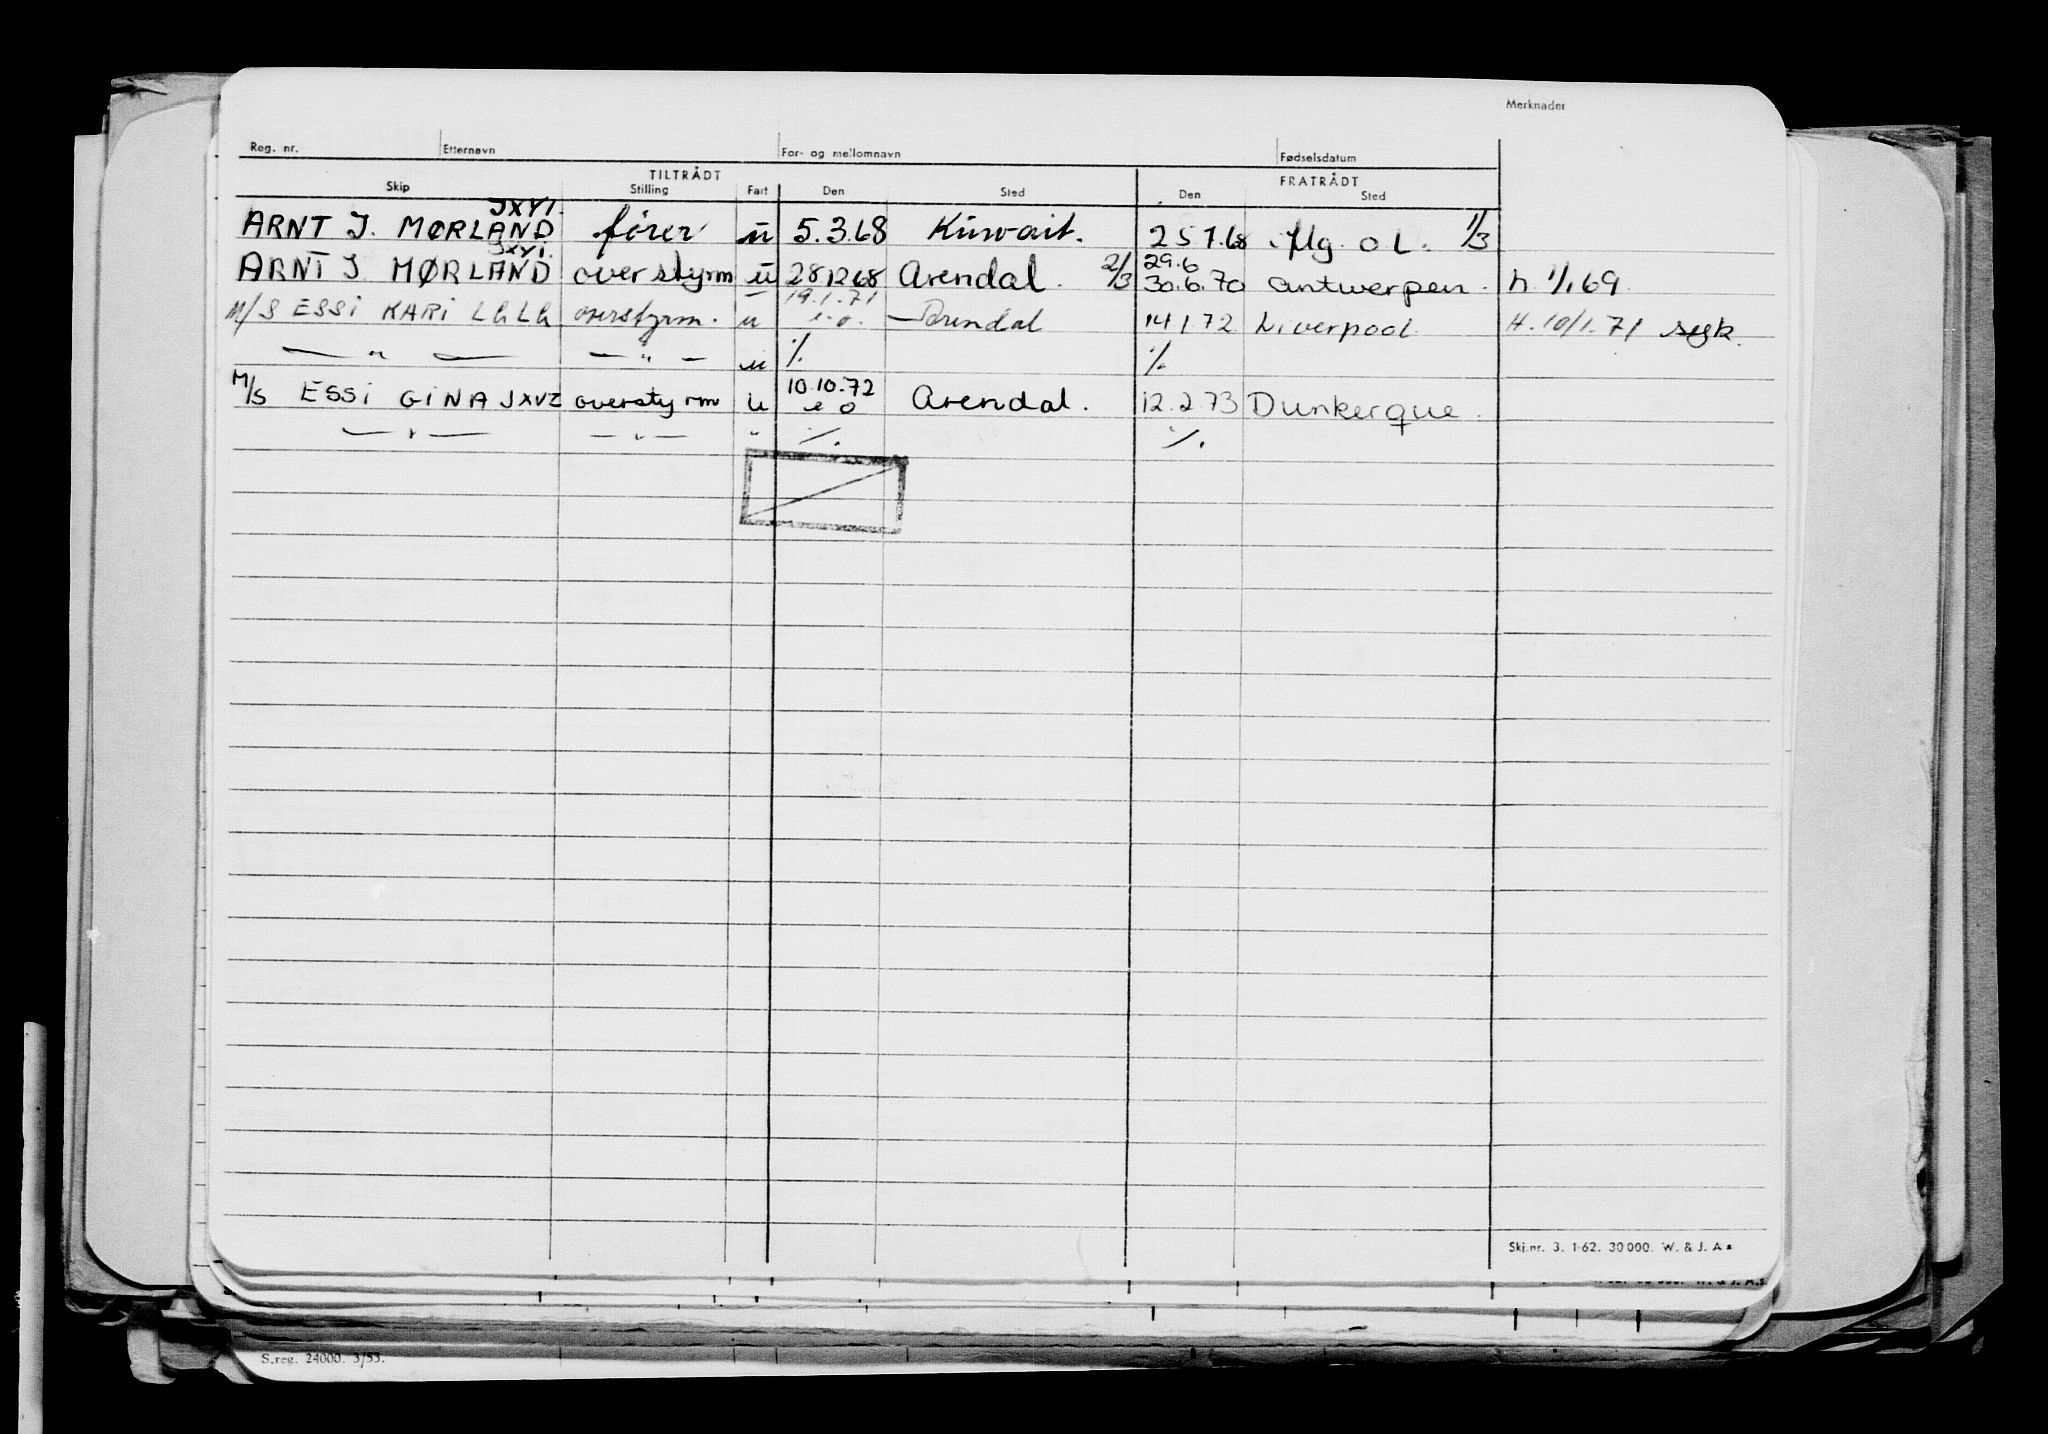 Merknader
Reg. nr. Etternavn For- og mellomnavn Fødselsdatum
TILTRÅDT FRATRÅDT
Skip Stilling Fart Den Sted Den Sted
JXYI.
ARNT J. MØRLAND fører u 5.3.68 Kuwait. 25 7.68 o L. 1/3
JXYI.
ARNT J MØRLAND overstyrm u 28 12 68 Arendal. 2/3 29.6 30.6.70 antwerpen. h. 1/1 69.
M/S ESSI KARI LGLG overstyrm. u 19.1.71 e.o. Arendal 14 1 72 Liverpool. H. 10/1.71 syk.
— " — — " — u %. %.
M/S ESSI GINA JXVZ overstyrm u 10.10.72 e o Arendal. 12.2 73 Dunkerque.
— " — — " — " %. %.
Skj.nr. 3. 1-62. 30 000. W. & J. A s
W. & J. A.s.
S.reg. 24000. 3/53.